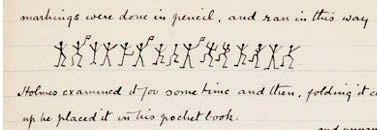 markings were done in pencil, and ran in this way
Holmes examined it for some time and then, folding it c
up he placed it in his pocket book.